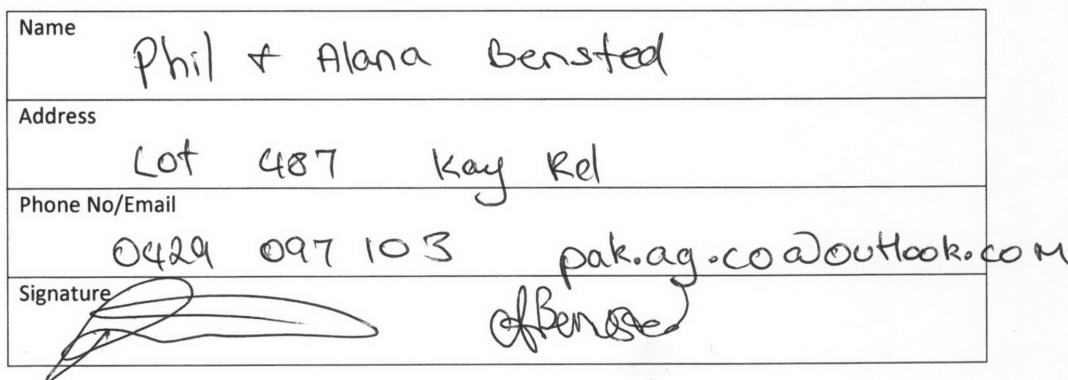 Name
Phil + Alana Bensted
Address
Lot 487 Kay Rd
Phone No/Email
0429 097 103 pak.ag.co@outlook.com
Signature